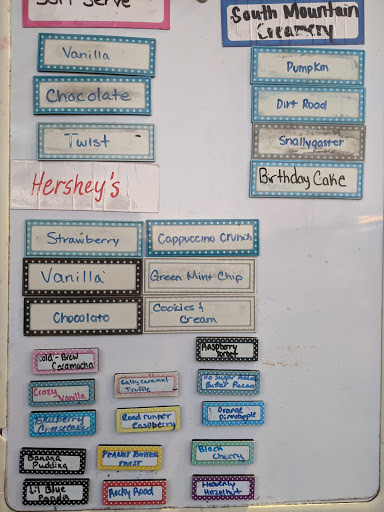 Soft Serve
Vanilla
Chocolate
Twist
South Mountain
Creamery
Pumpkin
Dirt Road
Snallygaster
Birthday Cake
Hershey's
Strawberry
Cappuccino Crunch
Vanilla
Green Mint Chip
Chocolate
Cookies &
Cream
Cold-Brew
Raspberry
Crazy
Vanilla
Salty Caramel
Truffle
No Sugar Added
Butter Pecan
Blueberry
Cheesecake
Roadrunner
Raspberry
Orange
Pineapple
Banana
Pudding
Peanut Butter
Twist
Black
Cherry
Lil Blue
Panda
Rocky Road
Heavenly
Hazelnut